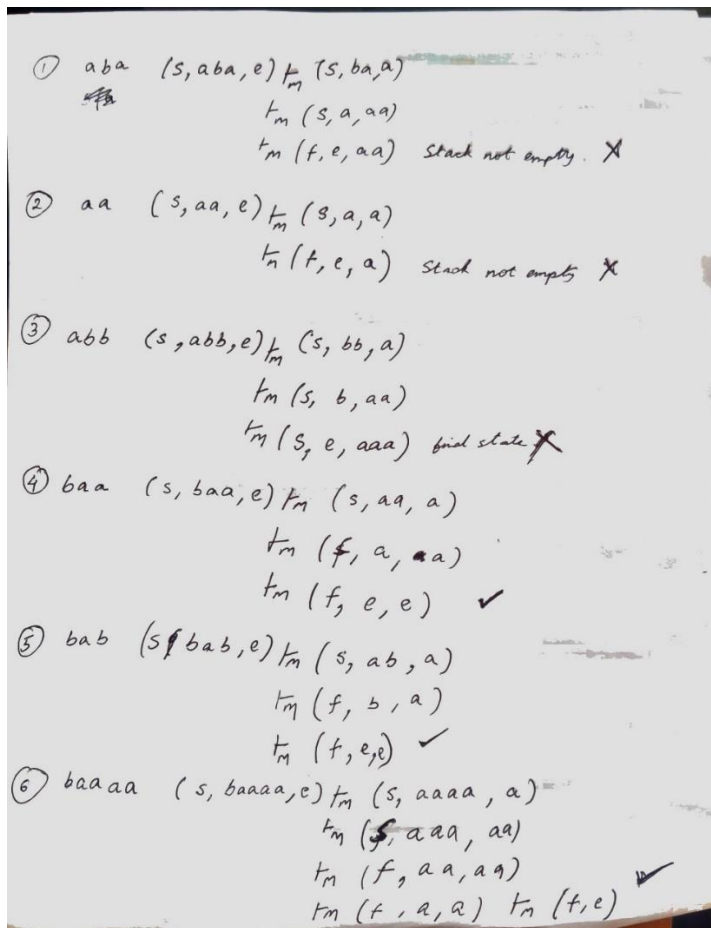 ① aba (s, aba, e) ⊢m (s, ba, a)
⊢m (s, a, aa)
⊢m (f, e, aa) Stack not empty. X
② aa (s, aa, e) ⊢m (s, a, a)
⊢m (f, e, a) Stack not empty X
③ abb (s, abb, e) ⊢m (s, bb, a)
⊢m (s, b, aa)
⊢m (s, e, aaa) final state X
④ baa (s, baa, e) ⊢m (s, aa, a)
⊢m (f, a, a)
⊢m (f, e, e) ✓
⑤ bab (s, bab, e) ⊢m (s, ab, a)
⊢m (f, b, a)
⊢m (f, e, e) ✓
⑥ baaaa (s, baaaa, e) ⊢m (s, aaaa, a)
⊢m (s, aaa, aa)
⊢m (f, aa, aa)
⊢m (f, a, a) ⊢m (f, e) ✓